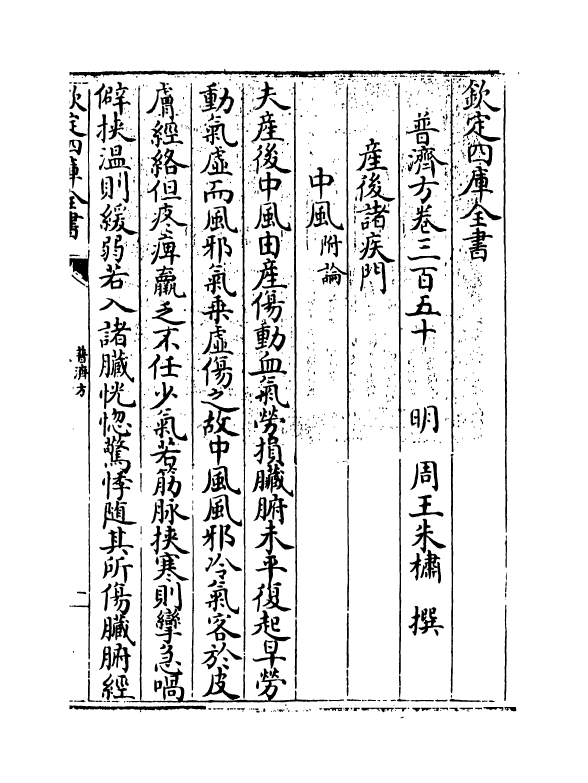 欽定四庫全書
普濟方卷三百五十　明　周王朱橚　撰
産後諸疾門
中風附論
夫産後中風由産傷動血氣勞損臟腑未平復起早勞
動氣虚而風邪氣乗虚傷之故中風風邪冷氣客於皮
膚經絡但疼痺羸乏不任少氣若筋脉挾寒則攣急喎
僻挾温則緩弱若入諸臟恍惚驚悸随其所傷臟腑經
欽定四庫全書
普濟方
二